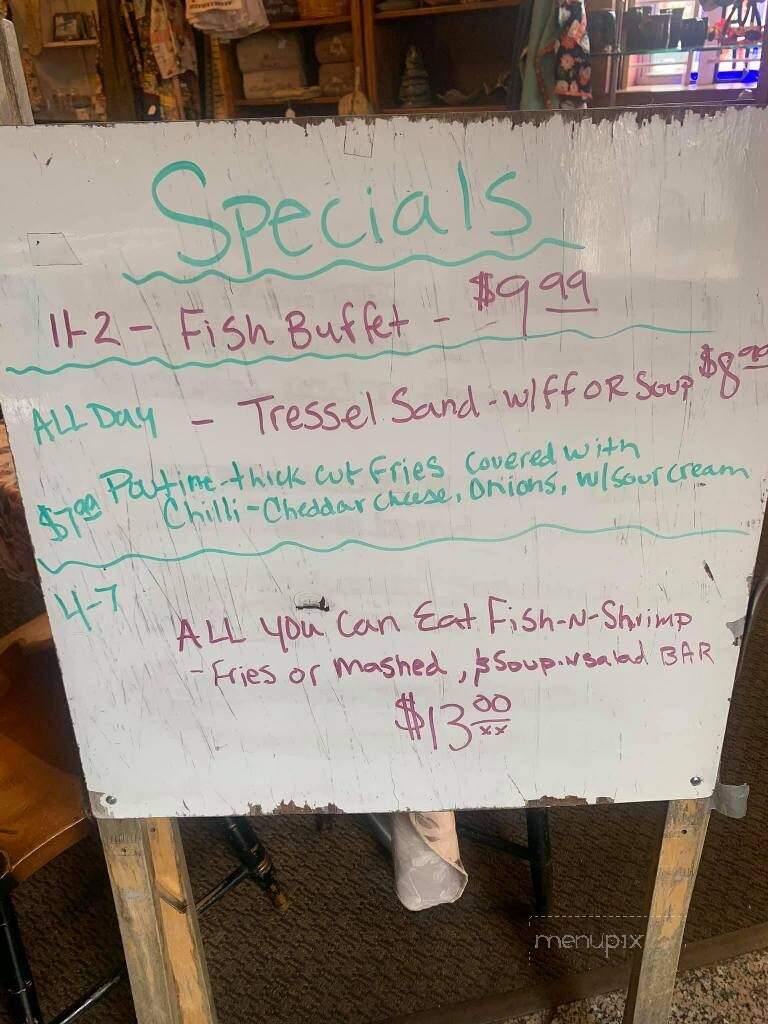 Specials
11-2 - Fish Buffet - $9.99
ALL Day - Tressel Sand - w/ff OR Soup $8.99
$7.99 Poutine - thick cut Fries Covered with
Chilli - Cheddar Cheese, Onions, w/sour cream
4-7
ALL you Can Eat Fish-N-Shrimp
- Fries or mashed, & Soup-N-salad BAR
$13.00
xx
menupix